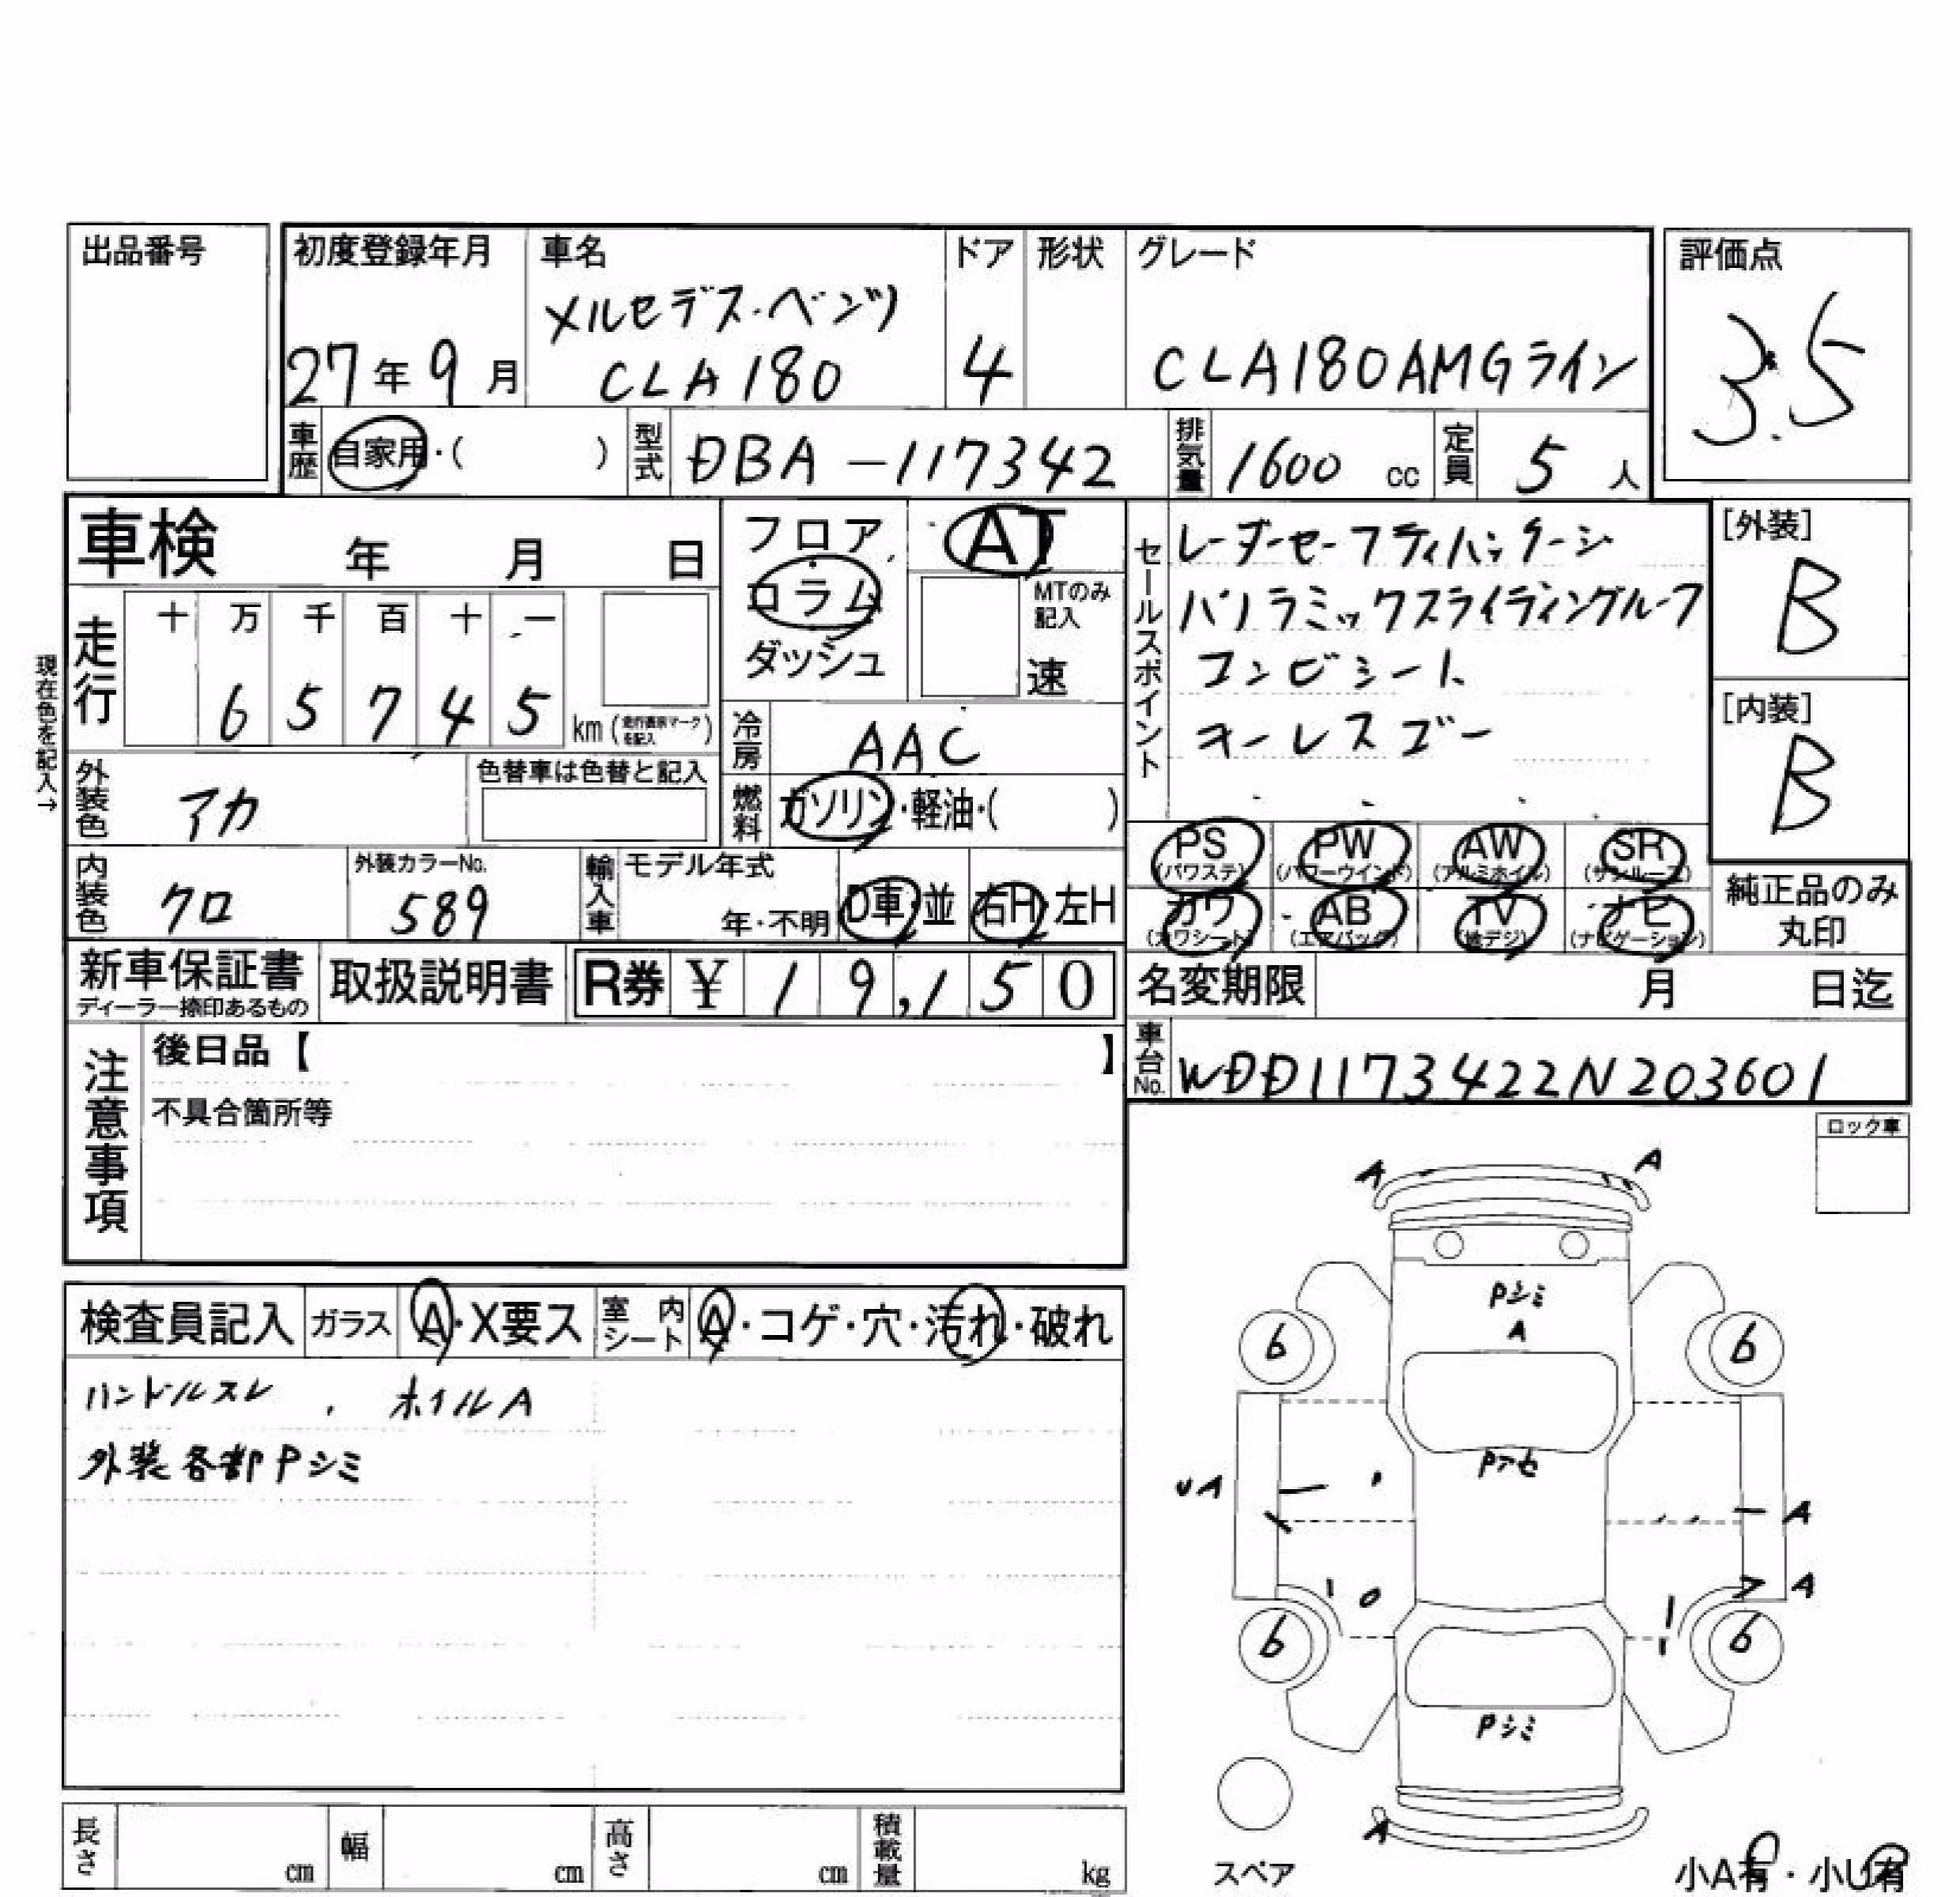 出品番号
初度登録年月 車名 ドア 形状 グレード 評価点
メルセデス・ベンツ
27年9月 CLA180 4 CLA180AMGライン 3.5
車歴 自家用・( ) 型式 DBA-117342 排気量 1600 cc 定員 5 人
車検 年 月 日
フロア AT
コラム MTのみ記入
ダッシュ 速
セールスポイント
レーダーセーフティパッケージ
パノラミックスライディングルーフ
コンビシート
キーレスゴー
[外装]
B
[内装]
B
現在色を記入→
走行 十 万 千 百 十 一
6 5 7 4 5 km (走行表示マークを記入)
冷房 AAC
外装色 アカ 色替車は色替と記入
燃料 ガソリン・軽油・( )
内装色 クロ 外装カラーNo. 589 輸入車 モデル年式 年・不明 D車・並 右H 左H
PS (パワステ) PW (パワーウインド) AW (アルミホイル) SR (サンルーフ)
カワ (カワシート) AB (エアバッグ) TV (地デジ) ナビ (ナビゲーション)
純正品のみ丸印
新車保証書 ディーラー捺印あるもの 取扱説明書 R券 ¥ 19,150
名変期限 月 日迄
車台No. WDD1173422N203601
注意事項
後日品【 】
不具合箇所等
ロック車
検査員記入 ガラス A・X要ス 室内シート A・コゲ・穴・汚れ・破れ
ハンドルスレ , ホイルA
外装各部Pシミ
A A
Pシミ
A
6 6
Pアセ
UA A
A
6 6
Pシミ
A
スペア
小A有・小U有
長さ cm 幅 cm 高さ cm 積載量 kg